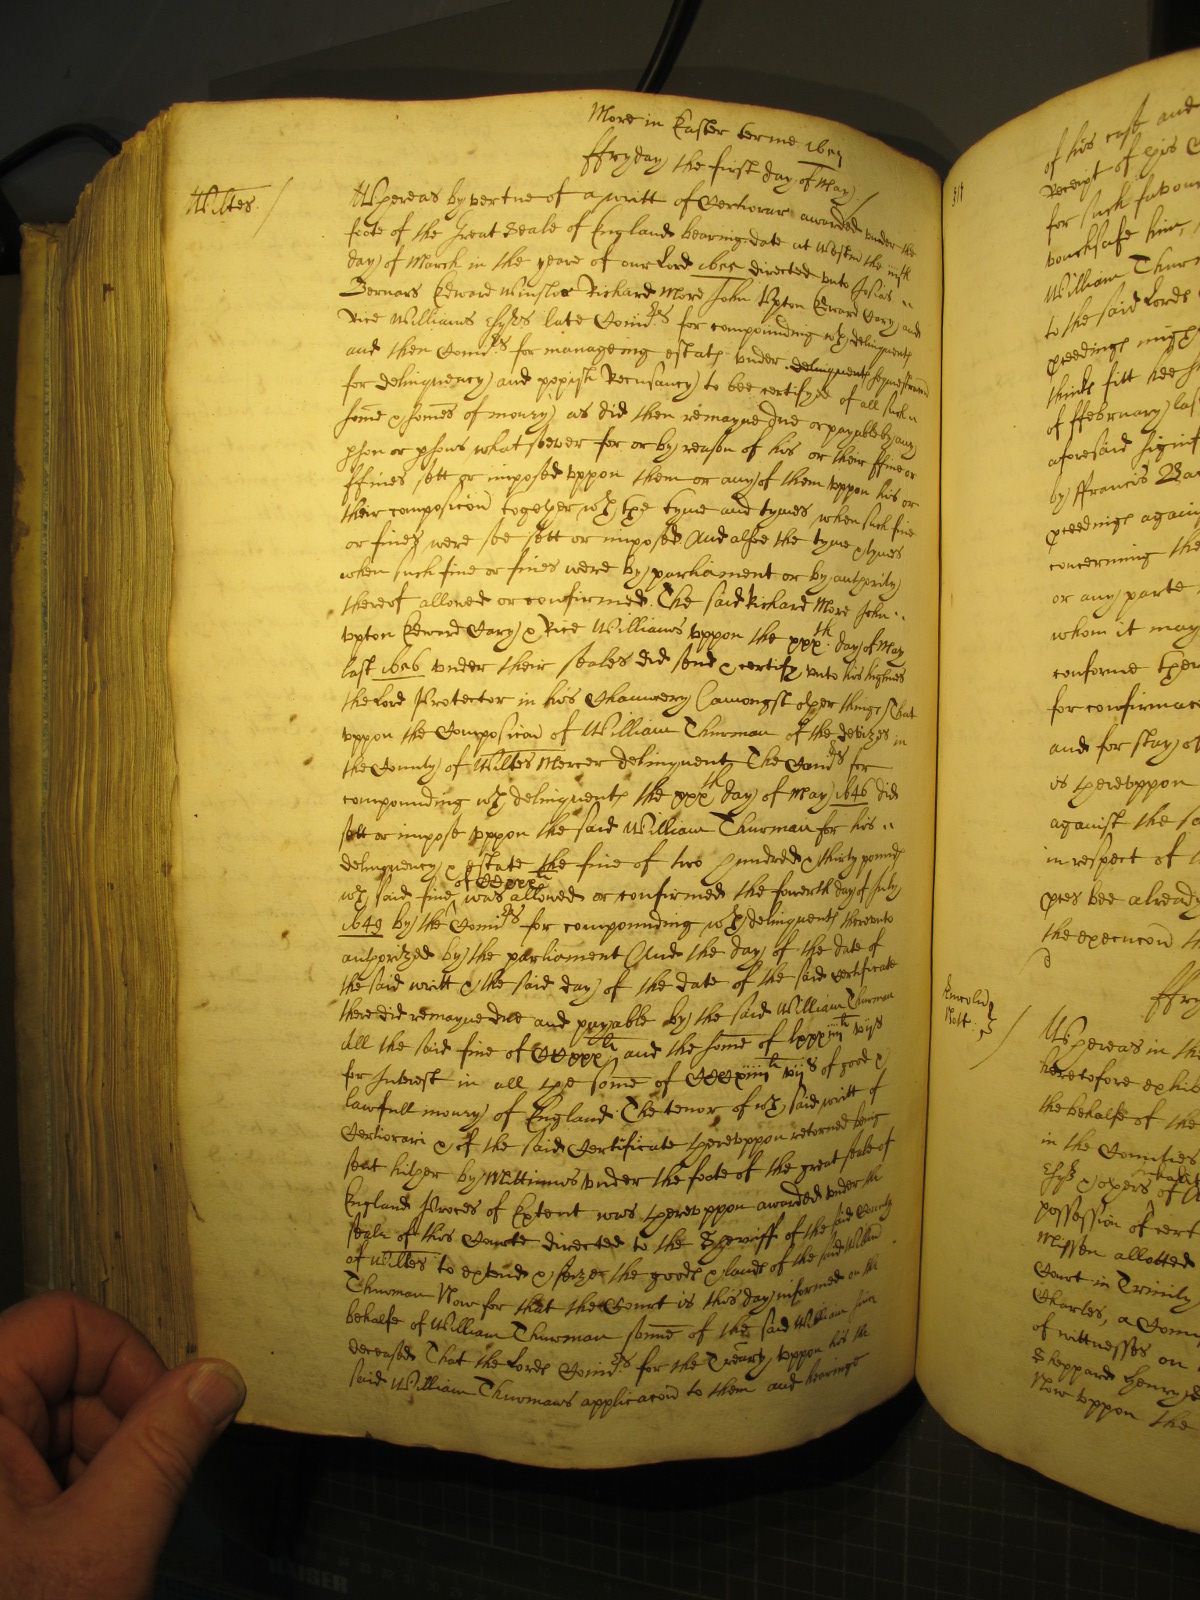 More in Easter terme 1657
ffryday the first day of May
Wiltes.
Whereas by vertue of a writt of Certiorar awarded vnder the
foote of the Great Seale of England bearing date at Westm the
day of March in the yeare of our Lord 1655 directed vnto Josias
Bernars Edward Winslor Richard More John Vpton Edward Cary and
Rice Williams Esqrs late Comrs for compounding wth delinquents
and then Comrs for manageing estats vnder delinquents sequestracon
for delinquency and popish Recusancy to bee certifyed of all such
some & somes of money as did then remayne due or payable by any
pson or psons whatsoever for or by reason of his or their ffine or
ffines sett or imposed vppon them or any of them vppon his or
their composicon together wth the tyme and tymes when such fine
or fines were soe sett or imposed And alsoe the tyme & tymes
when such fine or fines were by parliament or by authority
thereof allowed or confirmed. The said Richard More John
Vpton Edward Cary & Rice Williams vppon the xxxth day of May
last 1656 vnder their seales did send & certify vnto his highnes
the Lord Protector in his Chauncery (amongst other things) That
vppon the Composicon of William Thurman of the devizes in
the County of Wiltes Mercer delinquent The Comrs for
compounding wth delinquents the xxxth day of May 1646 did
sett or impose vppon the said William Thurman for his
delinquency & estate the fine of two hundred & thirty pounds
wch said fine of CCxxxli was allowed or confirmed the fowerth day of July
1649 by the Comrs for compounding wth delinquents therevnto
authorized by the parliament And the day of the date of
the said writt & the said day of the date of the said Certificate
there did remayne due and payable by the said William Thurman
All the said fine of CCxxxli and the some of lxxxiiijli vijs
for Interest in all the some of CCCxiiijli vijs of good &
lawfull money of England. The tenor of wch said writt of
Certiorari & of the said Certificate therevppon returned being
sent hither by Mittimus vnder the foote of the great seale of
England Proces of Extent was therevppon awarded vnder the
seale of this Courte directed to the Sheriff of the said County
of Wiltes to extend & seize the goods & lands of the said William
Thurman Now for that the Court is this day informed on the
behalfe of William Thurman sonne of the said William
deceased That the Lords Comrs for the Treary vppon his the
said William Thurmans applicacon to them and hearinge
of his case and
Receipt of his
for such favour
vouchsafe him,
William Thur
to the said Lords
pceedings might
thinks fitt hee
of ffebruary las
aforesaid signif
by ffrancis
pceedings again
concerning the
or any parte
whom it may
conforme
for confirmac
and for stay of
is therevppon
against the sa
in respect of
bee already
the execucon
ffry
Lincoln
Nott:
Whereas in the
heretofore exhib
the behalfe of the
in the Counties
Esqr & others of
possession of cert
Missen allotted
Court in Trinity
Charles, a Com
of wittnesses on
Sheppard Henry
Now vppon the